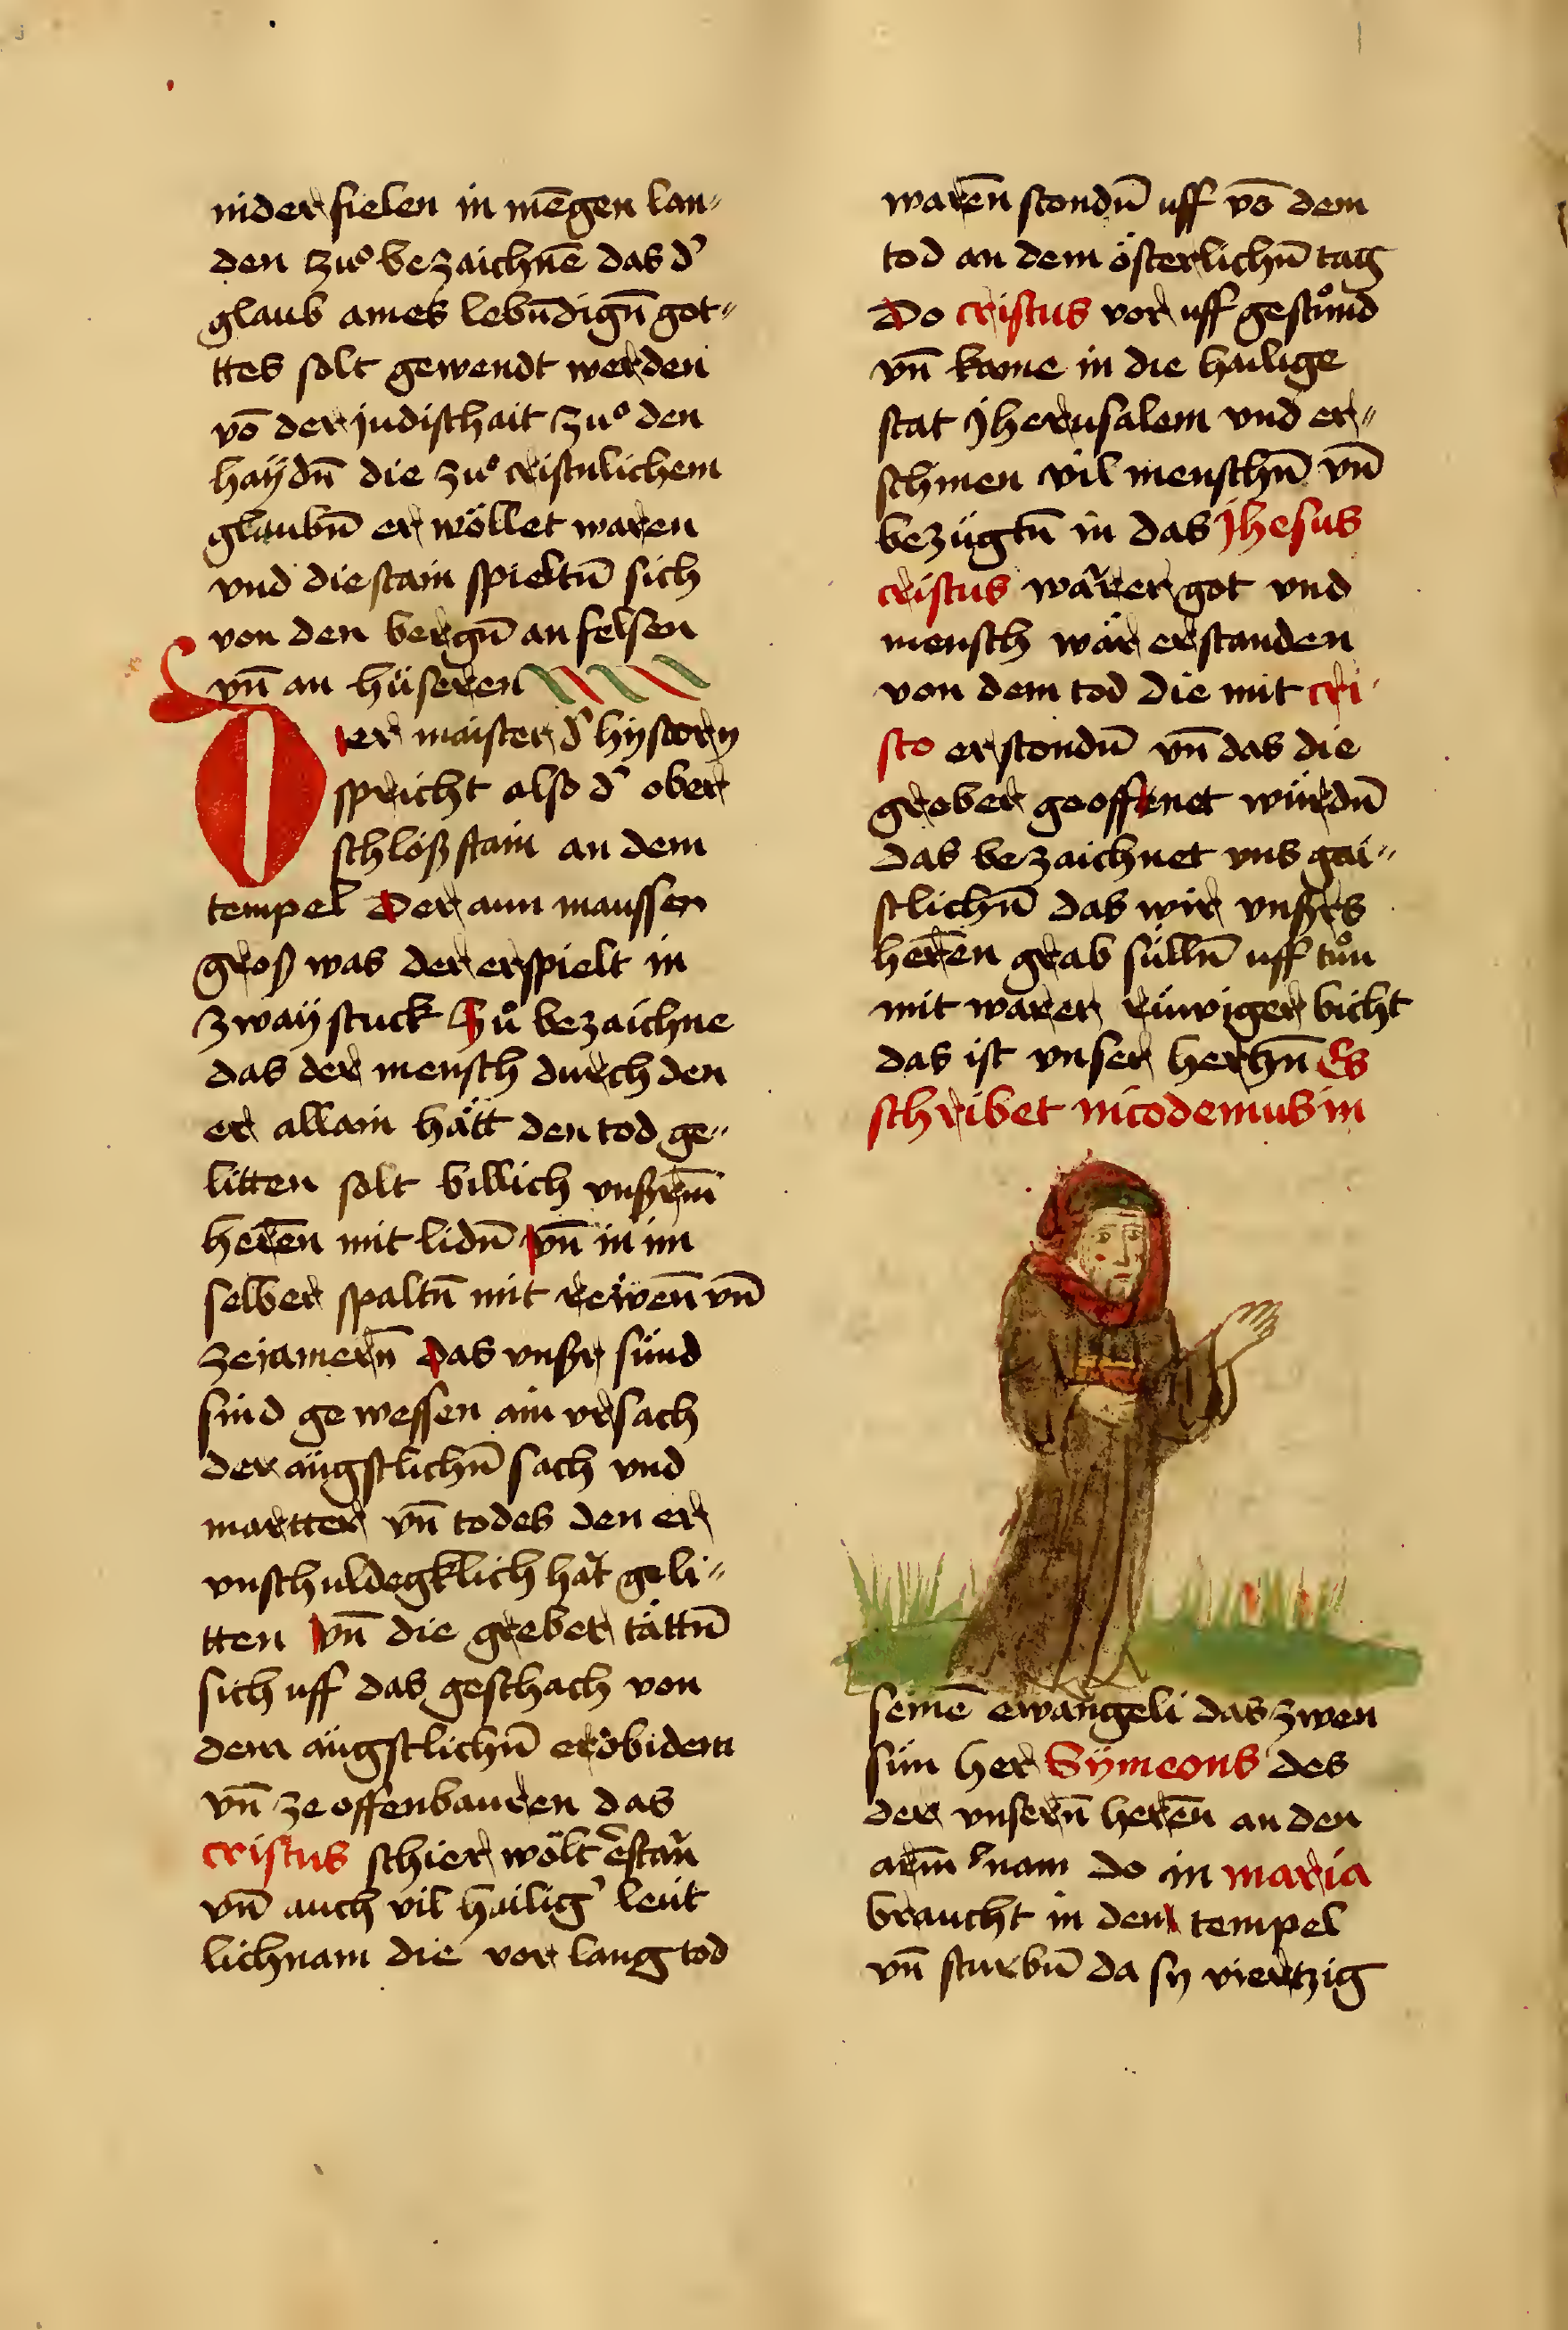 nider fielen in mēgen lan⸗
den zuͦ bezaichnē das dˀ
glaub ames lebūdigū got⸗
ttes solt gewendt werden
vō der judischait zuͦ den
haÿdn̄ die zuͦ cristnlichem
glaubn̄ er wöllet waren
vnd die stain spieltn̄ sich
von den bergn̄ an felsen
vn̄ an hüseren
Der maister dˀ hystory
spricht also dˀ ober
schloß stain an dem
tempel Der ann maussen
groß was der erspielt in
zwaÿ stuck Zuͦ bezaichne
das der mensch durch den
er allain hätt den tod ge⸗
litten solt billich vnßrem̄
herēn mit lidn̄ vn̄ in im
selber spaltn̄ mit rewēn vn̄
zejamern̄ Das vnßr sünd
sind gewessen ain vrsach
der ängstlichn̄ sach vnd
martter vn̄ todes den er
vnschuldegklich hät geli⸗
tten vn̄ die greber tättn̄
sich uff das geschach von
dem ängstlichn̄ erdbidem
vn̄ ze offenbauren das
cristus schier wölt erstan̄
vn̄ auch vil hailigˀ leüt
lichnam die vor lang tod
warēn stondn̄ uff vō dem
tod an dem österlichn̄ tag
Do cristus vor uff gestuͦnd
vn̄ kame in die hailige
stat Jherusalem vnd er⸗
schinen vil menschn̄ vn̄
bezügtn̄ in das Jhesus
cristus wārer got vnd
mensch wär erstanden
von dem tod die mit cri
sto erstondn̄ vn̄ das die
greber geoffenet würdn̄
das bezaichnet vns gai⸗
stlichn̄ das wir vnßrs
herēn grab sülln̄ uff tuͦn
mit warer rüwiger bicht
das ist vnser hertzn̄ Es
schribet nicodemus in
seinē ewangeli das zwen
sün her Sÿmeons des
der vnsern̄ herēn an den
arm̄ nam do in maria
braucht in den tempel
vn̄ sturbn̄ da sy viertzig